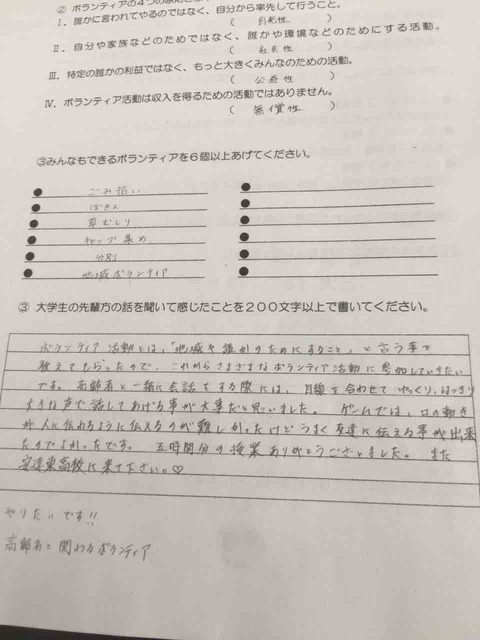 ② ボランティアの4つの原則
Ⅰ. 誰かに言われてやるのではなく、自分から率先して行うこと。
( 自発性 )
Ⅱ. 自分や家族などのためではなく、誰かや環境などのためにする活動。
( 社会性 )
Ⅲ. 特定の誰かの利益ではなく、もっと大きくみんなのための活動。
( 公益性 )
Ⅳ. ボランティア活動は収入を得るための活動ではありません。
( 無償性 )
③みんなもできるボランティアを6個以上あげてください。
● ごみ拾い
● ぼきん
● 草むしり
● キャップ集め
● 分別
● 地域ボランティア
③ 大学生の先輩方の話を聞いて感じたことを200文字以上で書いてください。
ボランティア活動とは、「地域や誰かのためにすること」と言う事で
教えてもらったので、これからさまざまなボランティア活動に参加していきたい
です。高齢者と一緒に会話をする際には、目線を合わせてゆっくり、はっきり
大きな声で話してあげる事が大事だと思いました。ゲームでは、口の動き
が人に伝わるように伝えるのが難しかったけどうまく友達に伝える事が出来
たのでよかったです。五時間分の授業ありがとうございました。また
安達東高校に来て下さい。♡
やりたいです!!
高齢者と関わるボランティア